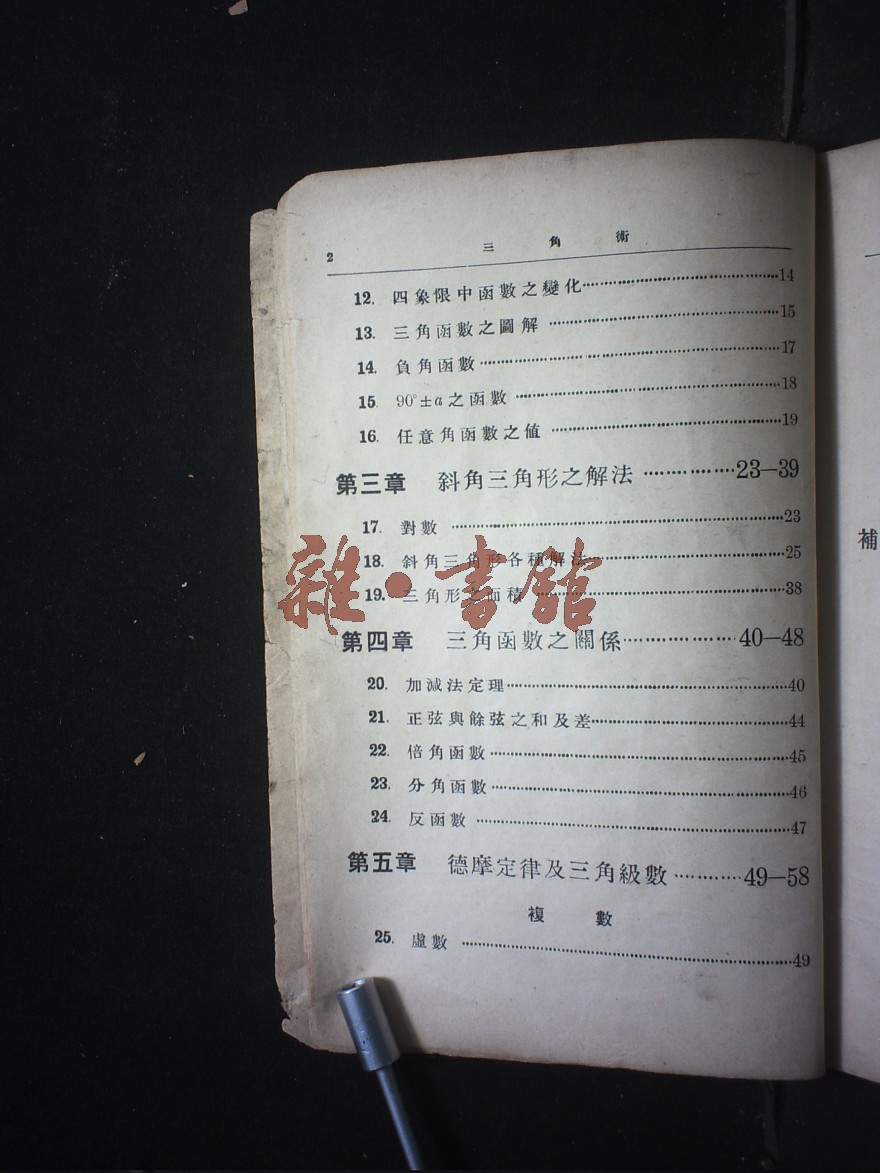 2 三角術
12. 四象限中函數之變化……14
13. 三角函數之圖解……15
14. 負角函數……17
15. 90°±α之函數……18
16. 任意角函數之值……19
第三章 斜角三角形之解法……23—39
17. 對數……23
18. 斜角三角形各種解法……25
19. 三角形之面積……38
雜·書館
第四章 三角函數之關係……40—48
20. 加減法定理……40
21. 正弦與餘弦之和及差……44
22. 倍角函數……45
23. 分角函數……46
24. 反函數……47
第五章 德摩定律及三角級數……49—58
複數
25. 虛數……49
補